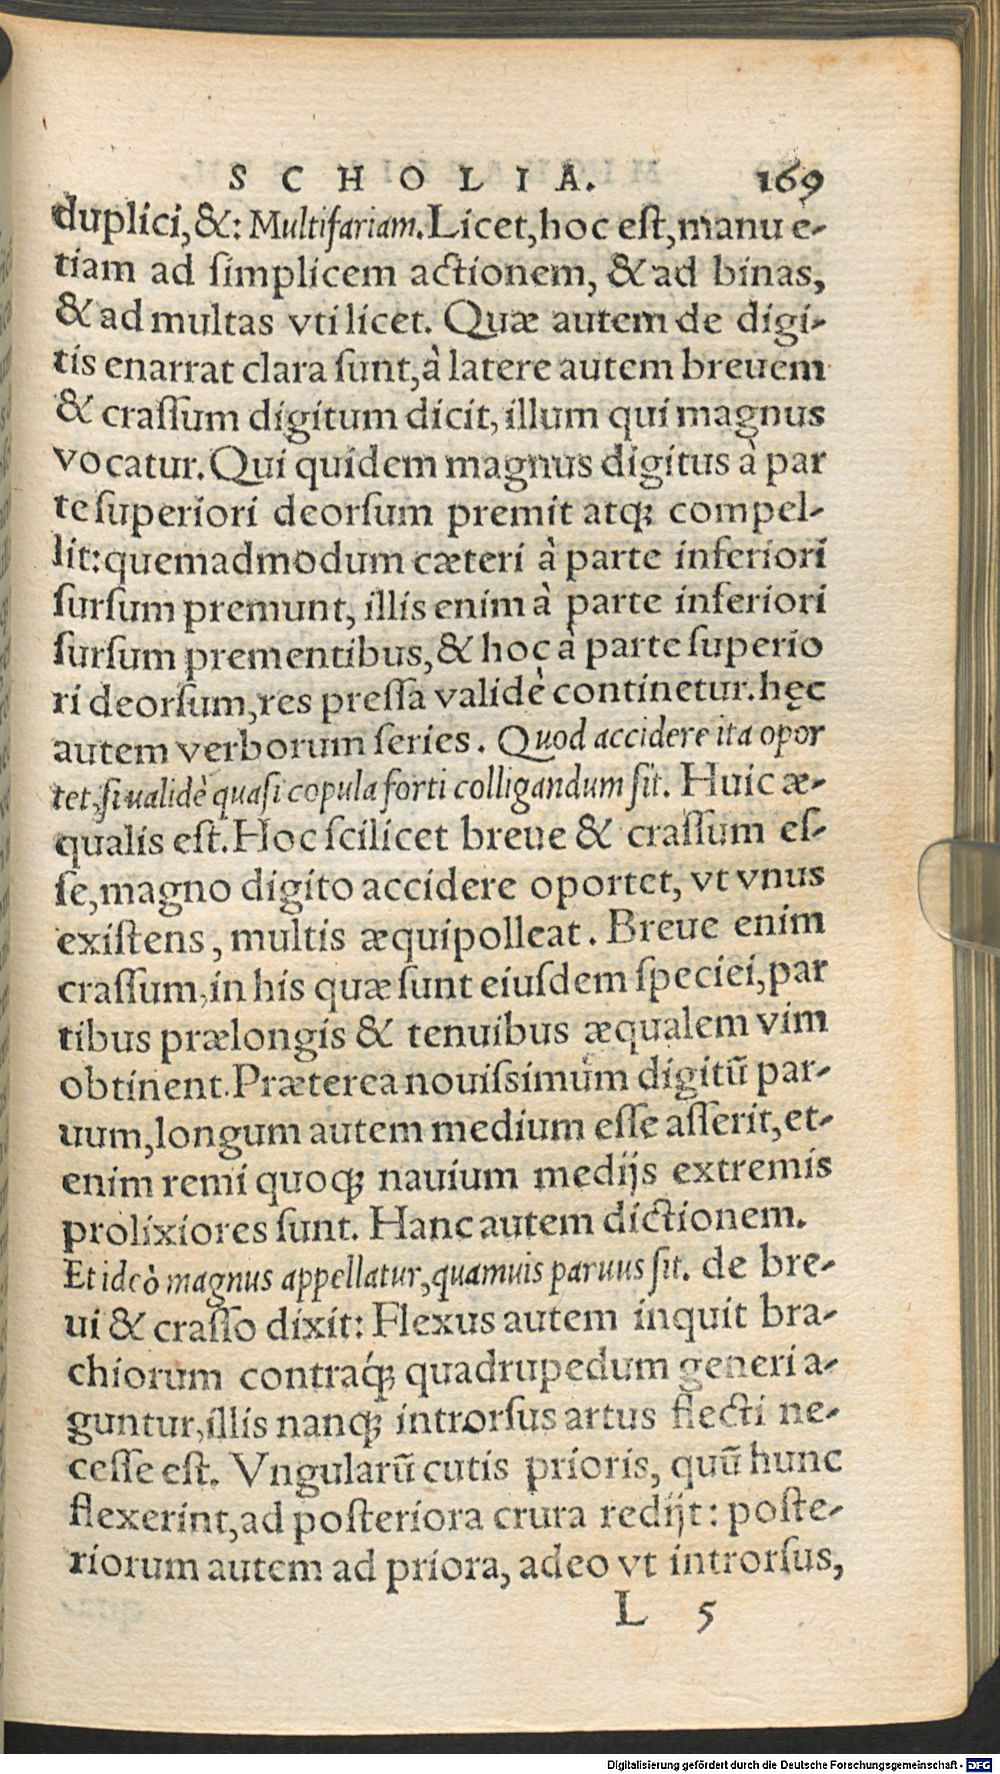 SCHOLIA. 169
duplici, &: Multifariam. Licet, hoc eſt, manu e-
tiam ad ſimplicem actionem, & ad binas,
& ad multas vti licet. Quæ autem de digi-
tis enarrat clara ſunt, à latere autem breuem
& craſſum digitum dicit, illum qui magnus
vocatur. Qui quidem magnus digitus à par
te ſuperiori deorſum premit atq; compel-
lit: quemadmodum cæteri à parte inferiori
ſurſum premunt, illis enim à parte inferiori
ſurſum prementibus, & hoc à parte ſuperio
ri deorſum, res preſſa validè continetur. hęc
autem verborum ſeries. Quod accidere ita opor
tet, ſi ualidè quaſi copula forti colligandum ſit. Huic æ-
qualis eſt. Hoc ſcilicet breue & craſſum eſ-
ſe, magno digito accidere oportet, vt vnus
exiſtens, multis æquipolleat. Breue enim
craſſum, in his quæ ſunt eiuſdem ſpeciei, par
tibus prælongis & tenuibus æqualem vim
obtinent. Præterea nouiſsimum digitũ par-
uum, longum autem medium eſſe aſſerit, et-
enim remi quoq; nauium medijs extremis
prolixiores ſunt. Hanc autem dictionem.
Et ideò magnus appellatur, quamuis paruus ſit. de bre-
ui & craſſo dixit: Flexus autem inquit bra-
chiorum contraq́; quadrupedum generi a-
guntur, illis nanq; introrſus artus flecti ne-
ceſſe eſt. Vngularũ cutis prioris, quũ hunc
flexerint, ad poſteriora crura redijt: poſte-
riorum autem ad priora, adeo vt introrſus,
L 5
Digitalisierung gefördert durch die Deutsche Forschungsgemeinschaft - DFG